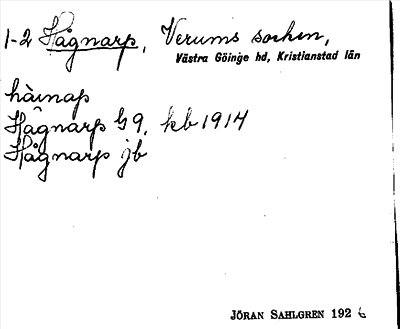 1-2 Hågnarp, Verums socken,
Västra Göinge hd, Kristianstad län
hàinap
Hågnarp G 9, kb 1914
Hågnarp jb
JÖRAN SAHLGREN 1926